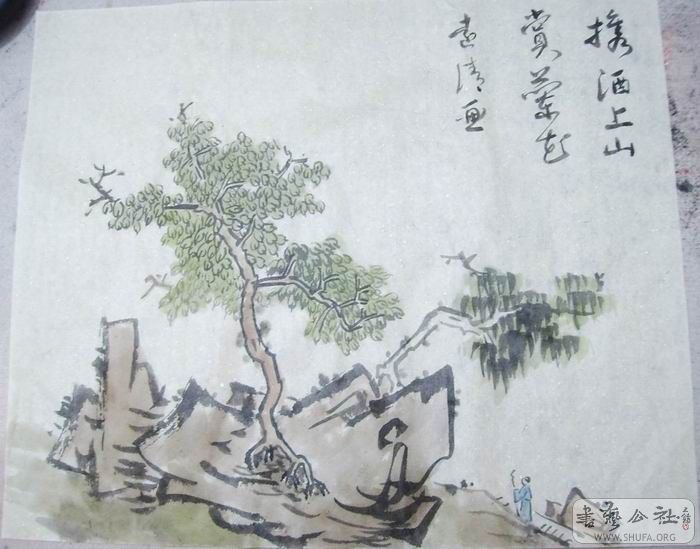 携酒上山
赏兰花
志清画
书艺公社
WWW.SHUFA.ORG